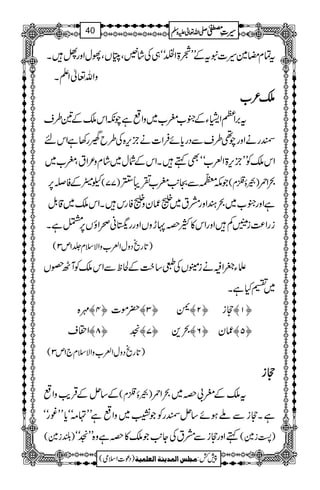 سیرتِ مصطفیٰ صلی اللہ تعالیٰ علیہ وسلم
40
یہ تمام مضامین سیرتِ نبویہ کے ’’شجرۃ الخلد‘‘ ہی کی شاخیں، پتیاں، پھول اور پھل ہیں۔
واللہ تعالیٰ اعلم۔
ملکِ عرب
یہ براعظم ایشیا کے جنوب مغرب میں واقع ہے چونکہ اس ملک کے تین طرف
سمندر نے اور چوتھی طرف سے دریائے فرات نے جزیرہ کی طرح گھیر رکھا ہے اس لئے
اس ملک کو ’’جزیرۃ العرب‘‘ بھی کہتے ہیں۔ اس کے شمال میں شام و عراق، مغرب میں
بحر احمر (بحیرۂ قلزم) جو مکہ معظمہ سے بجانب مغرب تقریباً ستتر (۷۷) کیلو میٹر کے فاصلہ پر
ہے اور جنوب میں بحر ہند اور مشرق میں خلیج عمان و خلیج فارس ہیں۔ اس ملک میں قابل
زراعت زمینیں کم ہیں اور اس کا اکثر حصہ پہاڑوں اور ریگستانی صحراؤں پر مشتمل ہے۔
(تاریخ دول العرب والاسلام جلد ۱ ص ۳)
علماءِ جغرافیہ نے زمینوں کی طبعی ساخت کے لحاظ سے اس ملک کو آٹھ حصوں
میں تقسیم کیا ہے۔
﴿۱﴾ حجاز ﴿۲﴾ یمن ﴿۳﴾ حضرموت ﴿۴﴾ مہرہ
﴿۵﴾ عمان ﴿۶﴾ بحرین ﴿۷﴾ نجد ﴿۸﴾ احقاف
(تاریخ دول العرب والاسلام ج ۱ ص ۳)
حجاز
یہ ملک کے مغربی حصہ میں بحر احمر (بحیرۂ قلزم) کے ساحل کے قریب واقع
ہے۔ حجاز سے ملے ہوئے ساحلِ سمندر کو جو نشیب میں واقع ہے ’’تہامہ‘‘ یا ’’غور‘‘
(پست زمین) کہتے ہیں اور حجاز سے مشرق کی جانب جو ملک کا حصہ ہے وہ ’’نجد‘‘ (بلند زمین)
پیش کش: مجلس المدینة العلمیة (دعوتِ اسلامی)